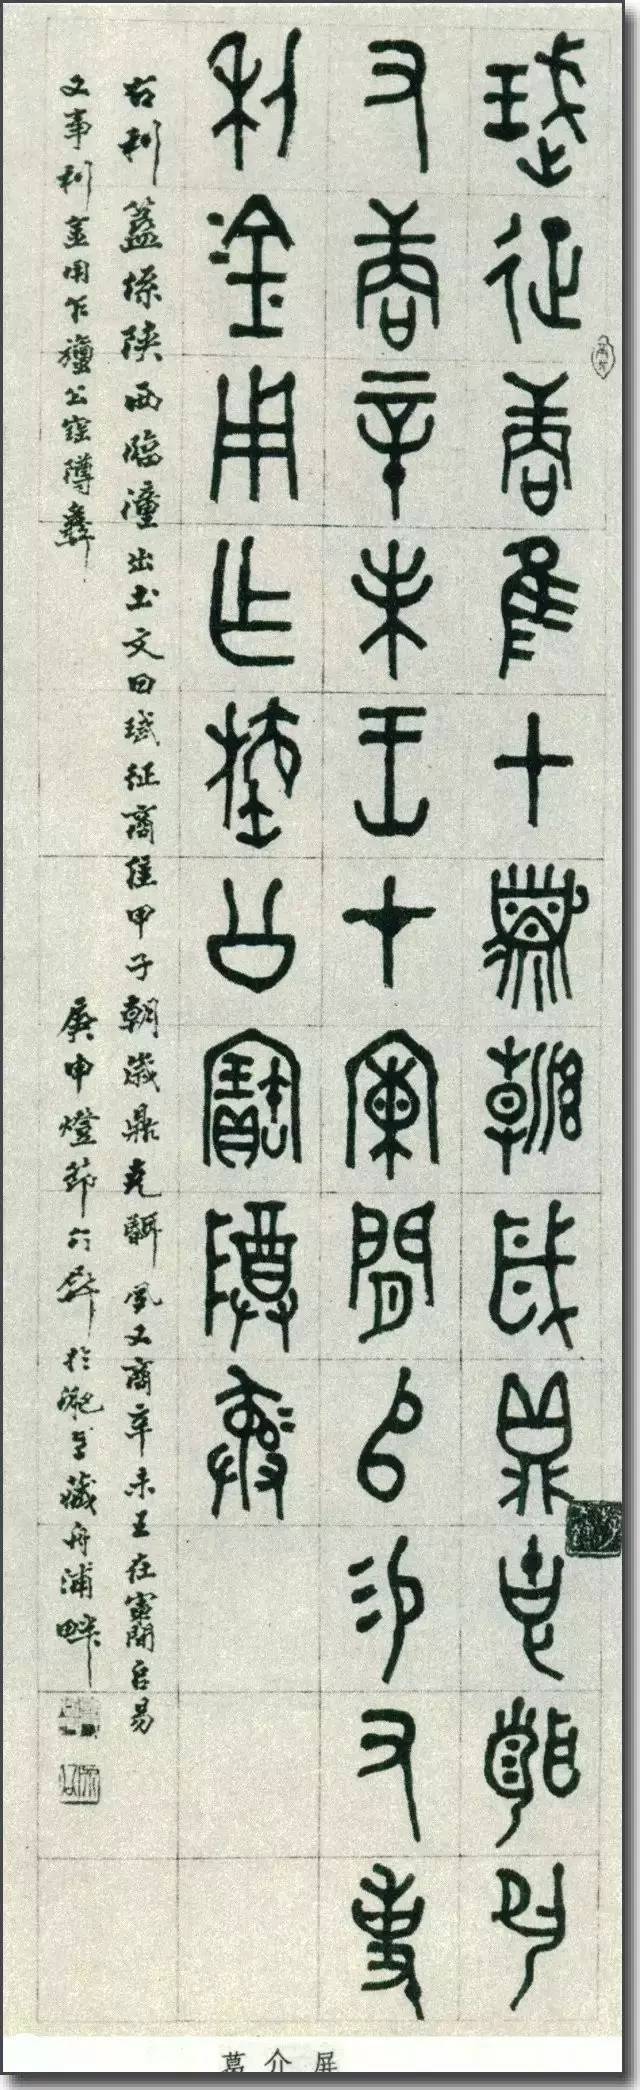 珷征商隹甲子朝歲鼎克聞夙
又商辛未王才間易又事
利金用乍旜公寶䵼彝
右利簋係陝西臨潼出土文曰珷征商隹甲子朝歲鼎克聞夙又商辛未王在間易
又事利金用乍旜公寶䵼彝 庚申燈節介屏於淝上藏舟浦畔
葛介屏